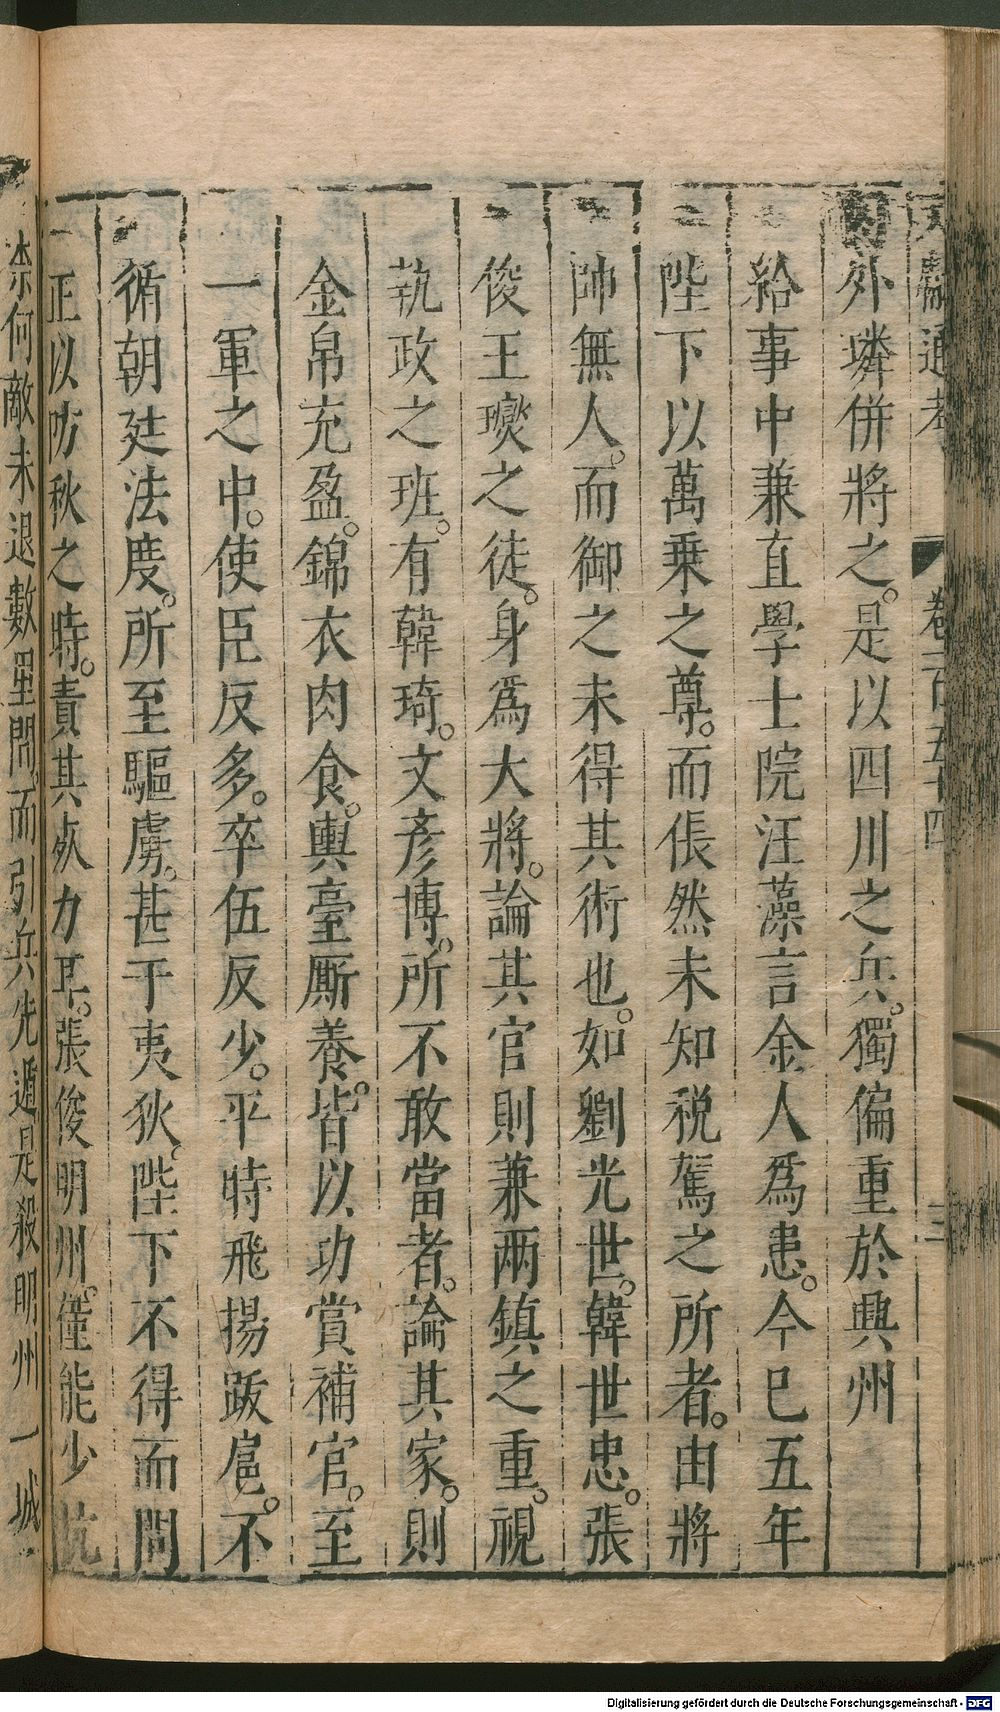 文獻通考 卷一百五十四 三
外璘併將之。是以四川之兵。獨偏重於興州
給事中兼直學士院汪藻言金人爲患。今巳五年
陛下以萬乗之尊。而倀然未知稅駕之所者。由將
帥無人。而御之未得其術也。如劉光世。韓世忠。張
俊王𤫉之徒。身爲大將。論其官則兼兩鎮之重。視
執政之班。有韓琦。文彥博。所不敢當者。論其家。則
金帛充盈。錦衣肉食。輿臺厮養。皆以功賞補官。至
一軍之中。使臣反多。卒伍反少。平時飛揚跋扈。不
循朝廷法度。所至驅虜。甚于夷狄。陛下不得而問
正以防秋之時。責其死力耳。張俊明州。僅能少抗
柰何敵未退數里間。而引兵先遁是殺明州一城
Digitalisierung gefördert durch die Deutsche Forschungsgemeinschaft - DFG